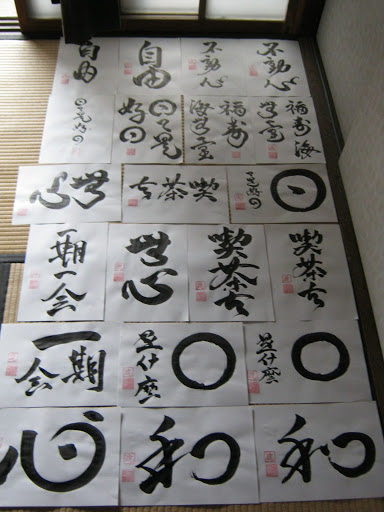 自由
自由
不動心
不動心
日々是好日
日々是
好日
福寿
海無量
福寿海
無量
無心
喫茶去
一期
一会
無心
喫茶去
喫茶去
一期
一会
是什麼
是什麼
心
和
和